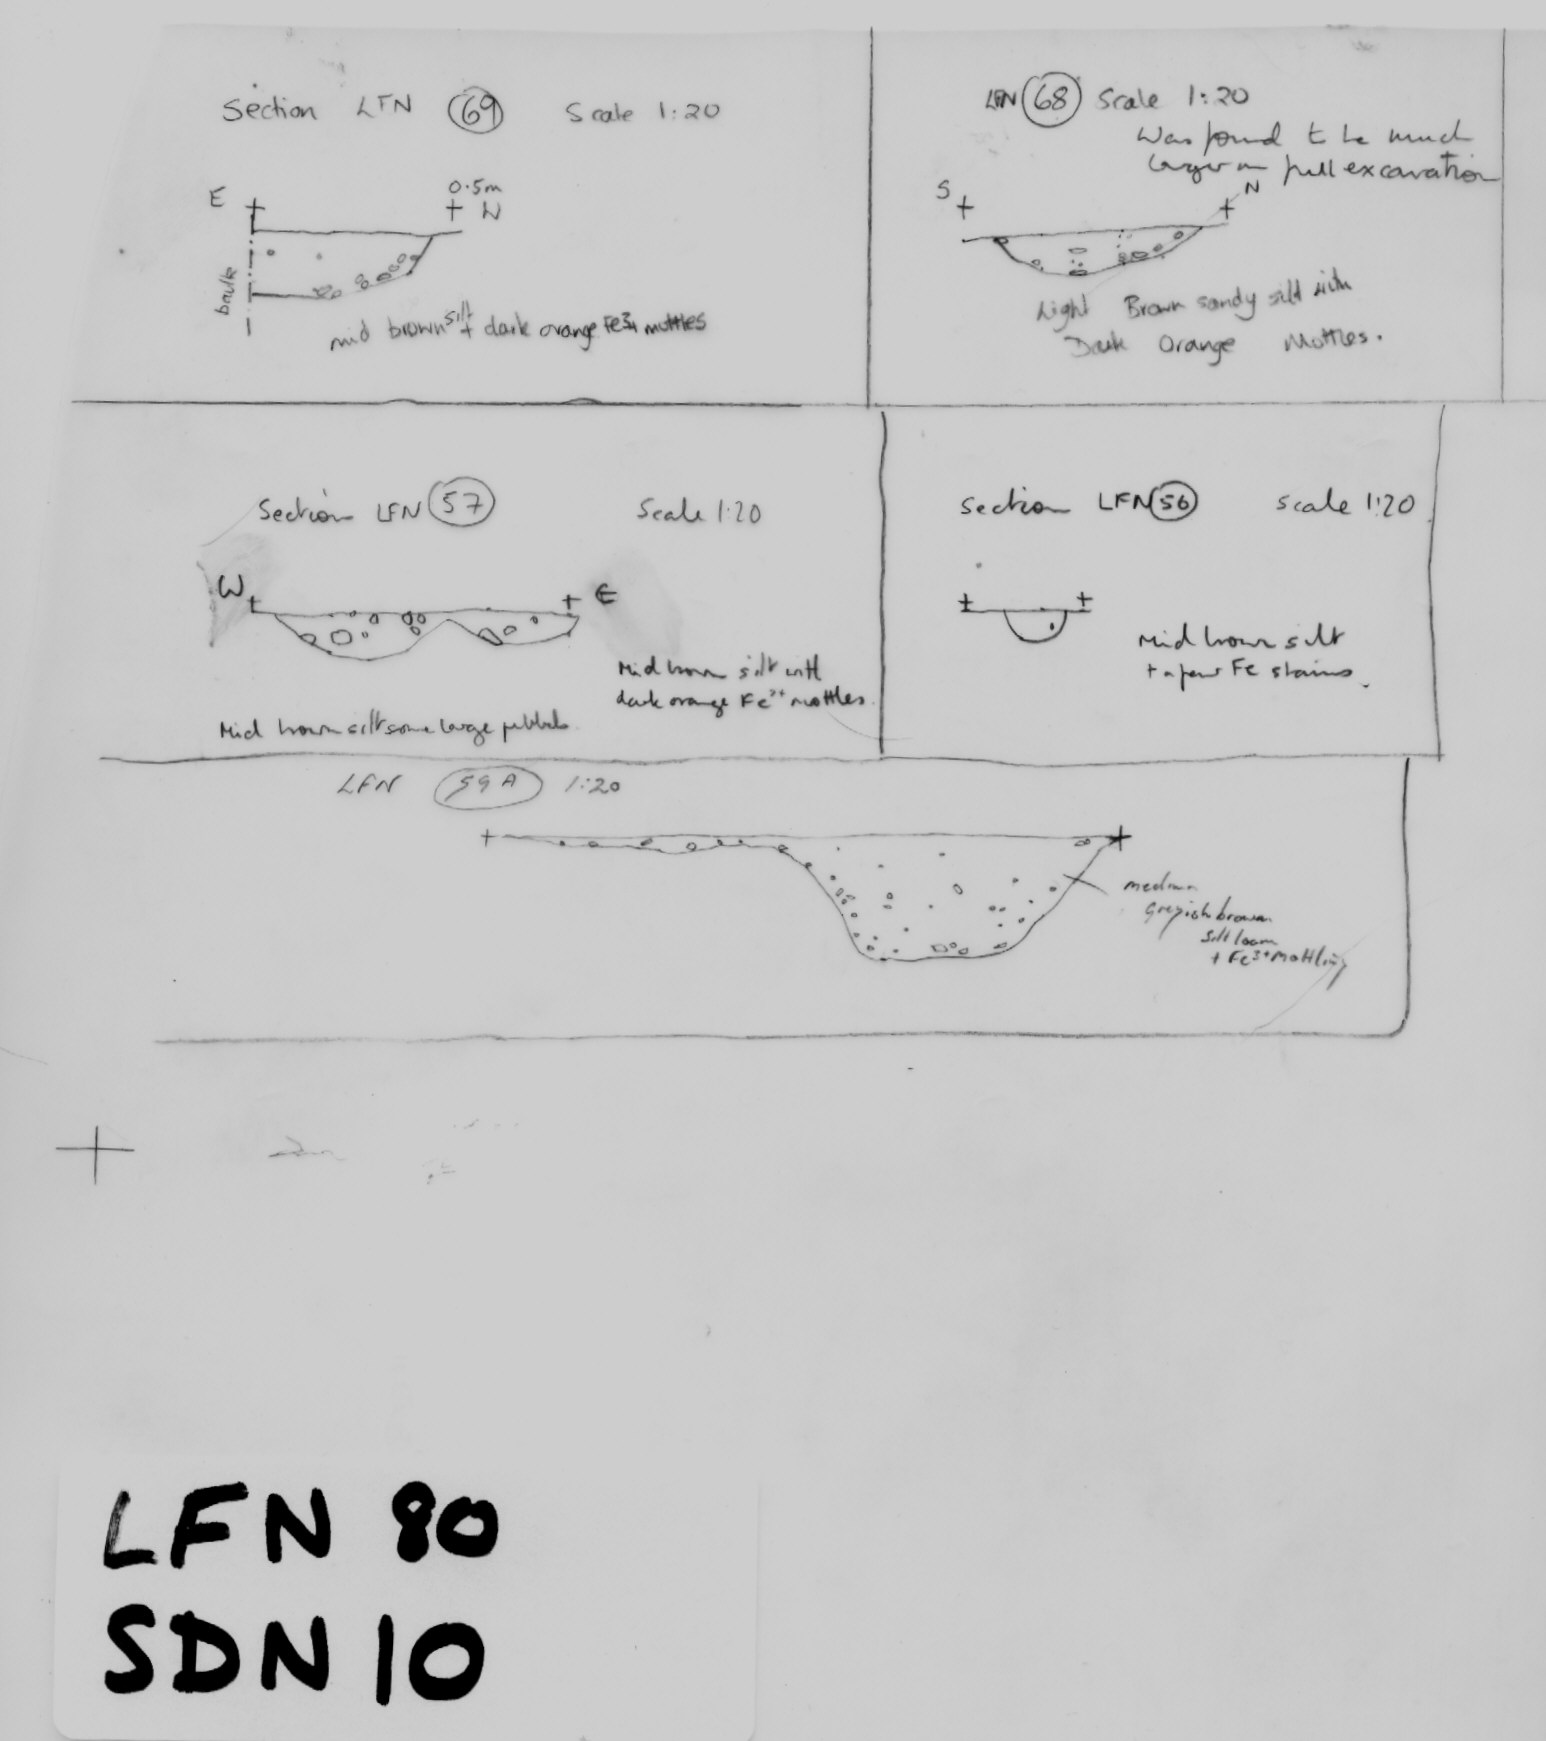 Section LFN 69 Scale 1:20
E
0.5m
W
baulk
mid brown silt + dark orange Fe3+ mottles
LFN 68 Scale 1:20
Was found to be much
larger on full excavation
S
N
Light Brown sandy silt with
Dark Orange Mottles.
Section LFN 57 Scale 1:20
W
E
Mid brown silt with
dark orange Fe³⁺ mottles.
Mid brown silt some large pebbles
Section LFN 56 Scale 1:20
Mid brown silt
+ a few Fe stains.
LFN 59A 1:20
medium
greyish brown
silt loam
+ Fe³⁺ Mottling
LFN 80
SDN 10